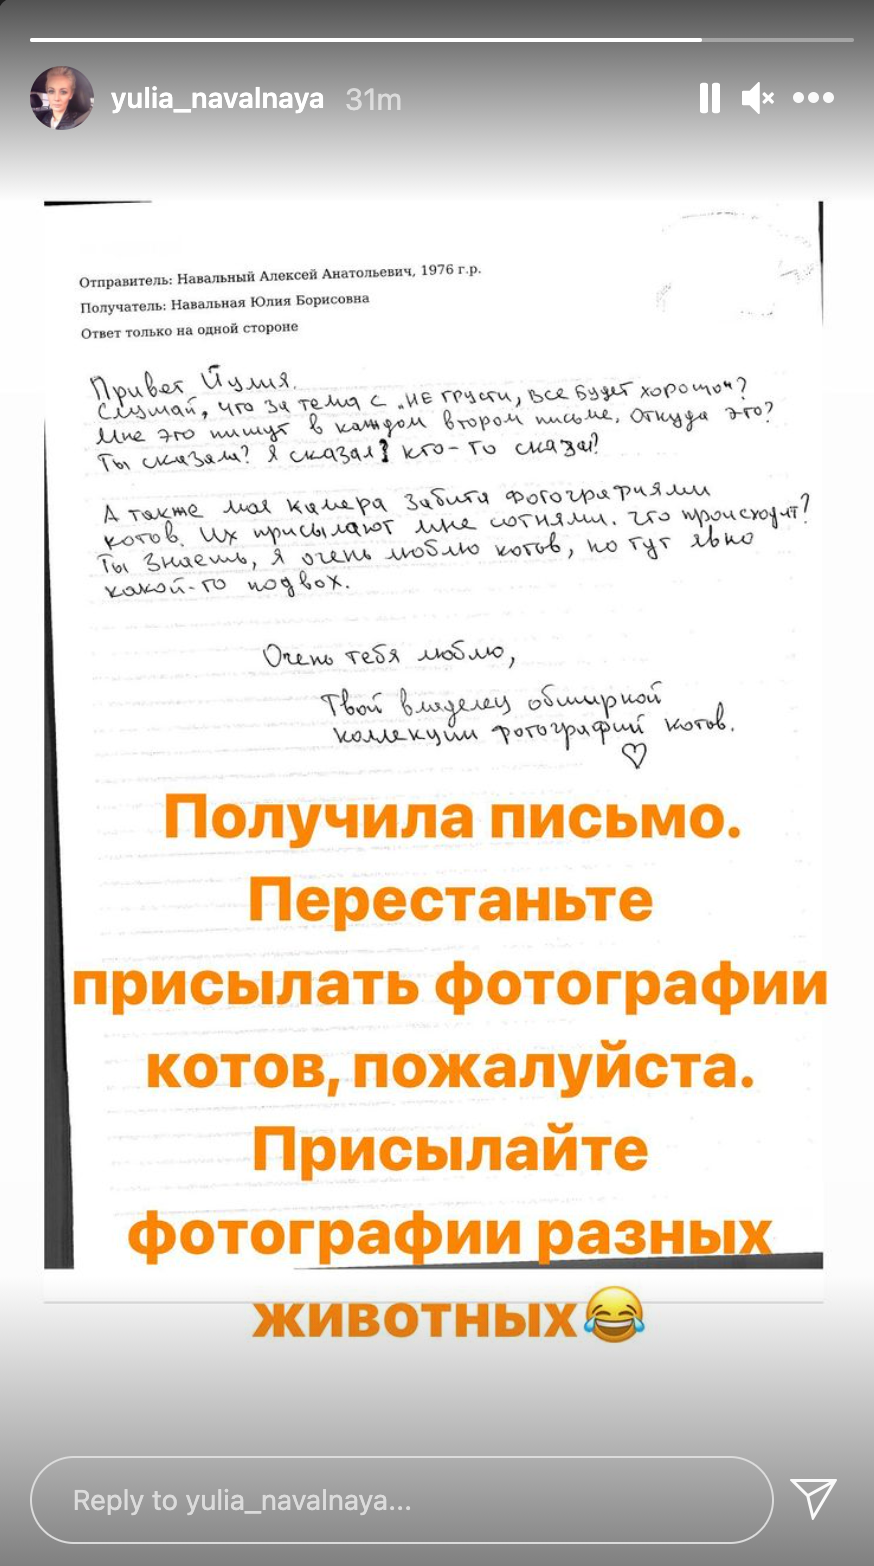 yulia_navalnaya 31m
Отправитель: Навальный Алексей Анатольевич, 1976 г.р.
Получатель: Навальная Юлия Борисовна
Ответ только на одной стороне
Привет Йулия.
Слушай, что за тема с „НЕ грусти, все будет хорошо"?
Мне это пишут в каждом втором письме. Откуда это?
Ты сказала? Я сказал? кто-то сказал?
А также моя камера забита фотографиями
котов. Их присылают мне сотнями. Что происходит?
Ты знаешь, я очень люблю котов, но тут явно
какой-то подвох.
Очень тебя люблю,
Твой владелец обширной
коллекции фотографий котов.
♡
Получила письмо.
Перестаньте
присылать фотографии
котов, пожалуйста.
Присылайте
фотографии разных
животных😂
Reply to yulia_navalnaya...